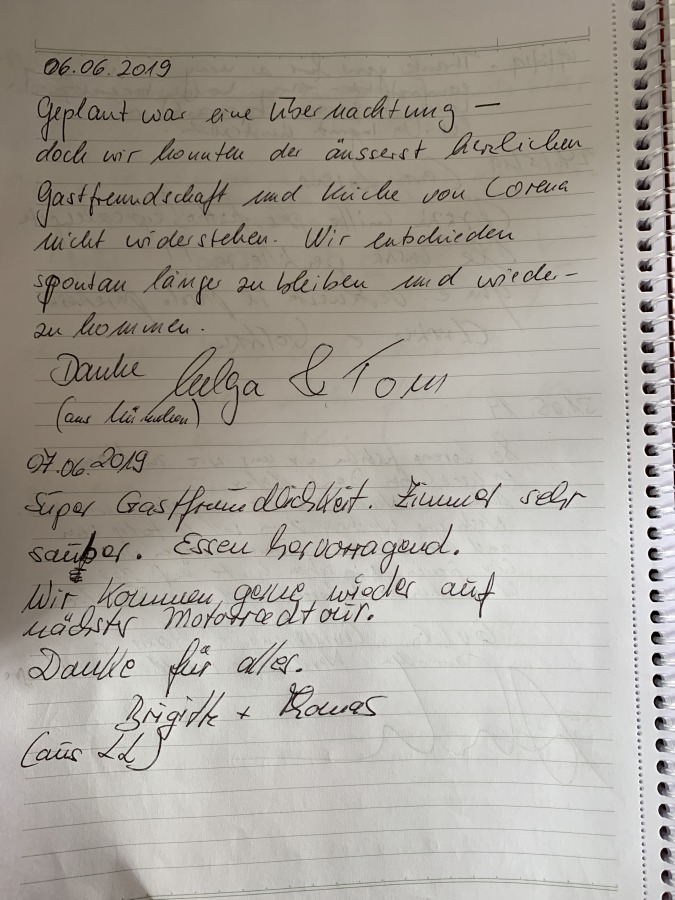 06.06.2019
Geplant war eine Übernachtung —
doch wir konnten der äusserst herzlichen
Gastfreundschaft und Küche von Lorena
nicht widerstehen. Wir entschieden
spontan länger zu bleiben und wieder-
zu kommen.
Danke Helga & Tom
(aus München)
07.06.2019
Super Gastfreundlichkeit. Zimmer sehr
sauber. Essen hervorragend.
Wir kommen gerne wieder auf
nächster Motorradtour.
Danke für alles.
Brigitte + Thomas
(aus LL)